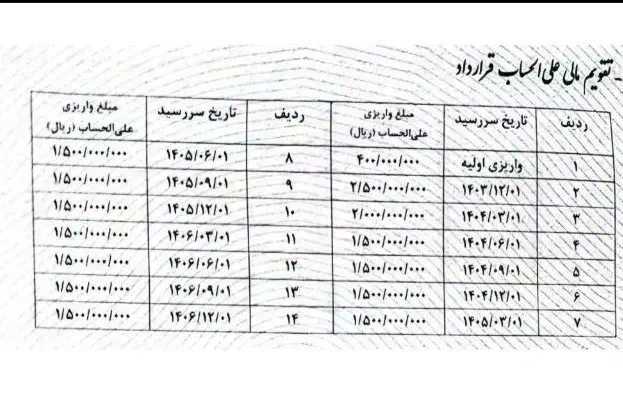 - تقویم مالی علی الحساب قرارداد
ردیف	تاریخ سررسید	مبلغ واریزی علی‌الحساب (ریال)	ردیف	تاریخ سررسید	مبلغ واریزی علی‌الحساب (ریال)
۱	واریزی اولیه	۴۰۰/۰۰۰/۰۰۰	۸	۱۴۰۵/۰۶/۰۱	۱/۵۰۰/۰۰۰/۰۰۰
۲	۱۴۰۳/۱۲/۰۱	۲/۵۰۰/۰۰۰/۰۰۰	۹	۱۴۰۵/۰۹/۰۱	۱/۵۰۰/۰۰۰/۰۰۰
۳	۱۴۰۴/۰۳/۰۱	۲/۰۰۰/۰۰۰/۰۰۰	۱۰	۱۴۰۵/۱۲/۰۱	۱/۵۰۰/۰۰۰/۰۰۰
۴	۱۴۰۴/۰۶/۰۱	۱/۵۰۰/۰۰۰/۰۰۰	۱۱	۱۴۰۶/۰۳/۰۱	۱/۵۰۰/۰۰۰/۰۰۰
۵	۱۴۰۴/۰۹/۰۱	۱/۵۰۰/۰۰۰/۰۰۰	۱۲	۱۴۰۶/۰۶/۰۱	۱/۵۰۰/۰۰۰/۰۰۰
۶	۱۴۰۴/۱۲/۰۱	۱/۵۰۰/۰۰۰/۰۰۰	۱۳	۱۴۰۶/۰۹/۰۱	۱/۵۰۰/۰۰۰/۰۰۰
۷	۱۴۰۵/۰۳/۰۱	۱/۵۰۰/۰۰۰/۰۰۰	۱۴	۱۴۰۶/۱۲/۰۱	۱/۵۰۰/۰۰۰/۰۰۰